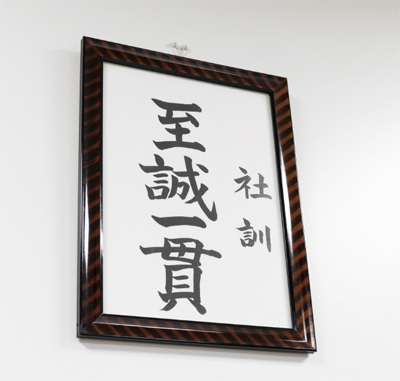 社訓
至誠一貫